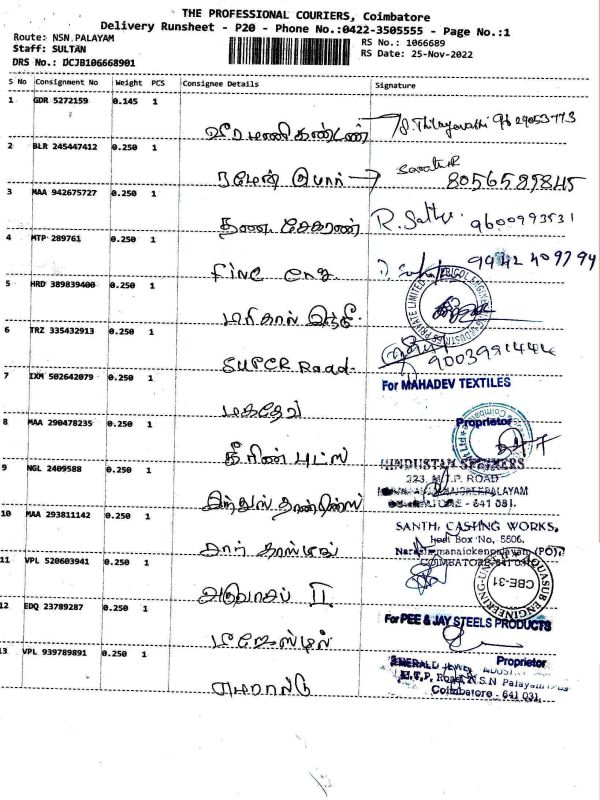 THE PROFESSIONAL COURIERS, Coimbatore
Delivery Runsheet - P20 - Phone No.:0422-3505555 - Page No.:1
Route: NSN PALAYAM
Staff: SULTAN
DRS No.: DCJB106668901
RS No.: 1066689
RS Date: 25-Nov-2022
S No Consignment No Weight PCS Consignee Details Signature
1 GDR 5272159 0.145 1
வீரமணிகண்டன் 9629053773
2 BLR 245447412 0.250 1
ரமேன் 8056589845
3 MAA 942675727 0.250 1
தன சேகரன் R. 9600993531
4 MTP 289761 0.250 1
fine eng 9442409794
5 HRD 389839400 0.250 1
6 TRZ 335432913 0.250 1
SUPER Road- 9003991444
7 IXM 502642079 0.250 1
For MAHADEV TEXTILES
மகதேவ்
Proprietor
8 MAA 290478235 0.250 1
கிரீன் புட்ஸ்
9 NGL 2409588 0.250 1
HINDUSTAN SPINNERS
323, M.T.P. ROAD
COIMBATORE - 641 031.
10 MAA 293811142 0.250 1
SANTHI CASTING WORKS,
Post Box No. 5506.
Narasimmanaickenpalayam (PO),
COIMBATORE-641 031
11 VPL 520603941 0.250 1
CBE-31
AQUASUB ENGINEERING-UNIT II
அகுவாசப் II
12 EDQ 23789287 0.250 1
For PEE & JAY STEELS PRODUCTS
Proprietor
13 VPL 939789891 0.250 1
EMERALD JEWEL
M.T.P. Road, N.S.N Palayam
Coimbatore - 641 031.
எமரால்டு